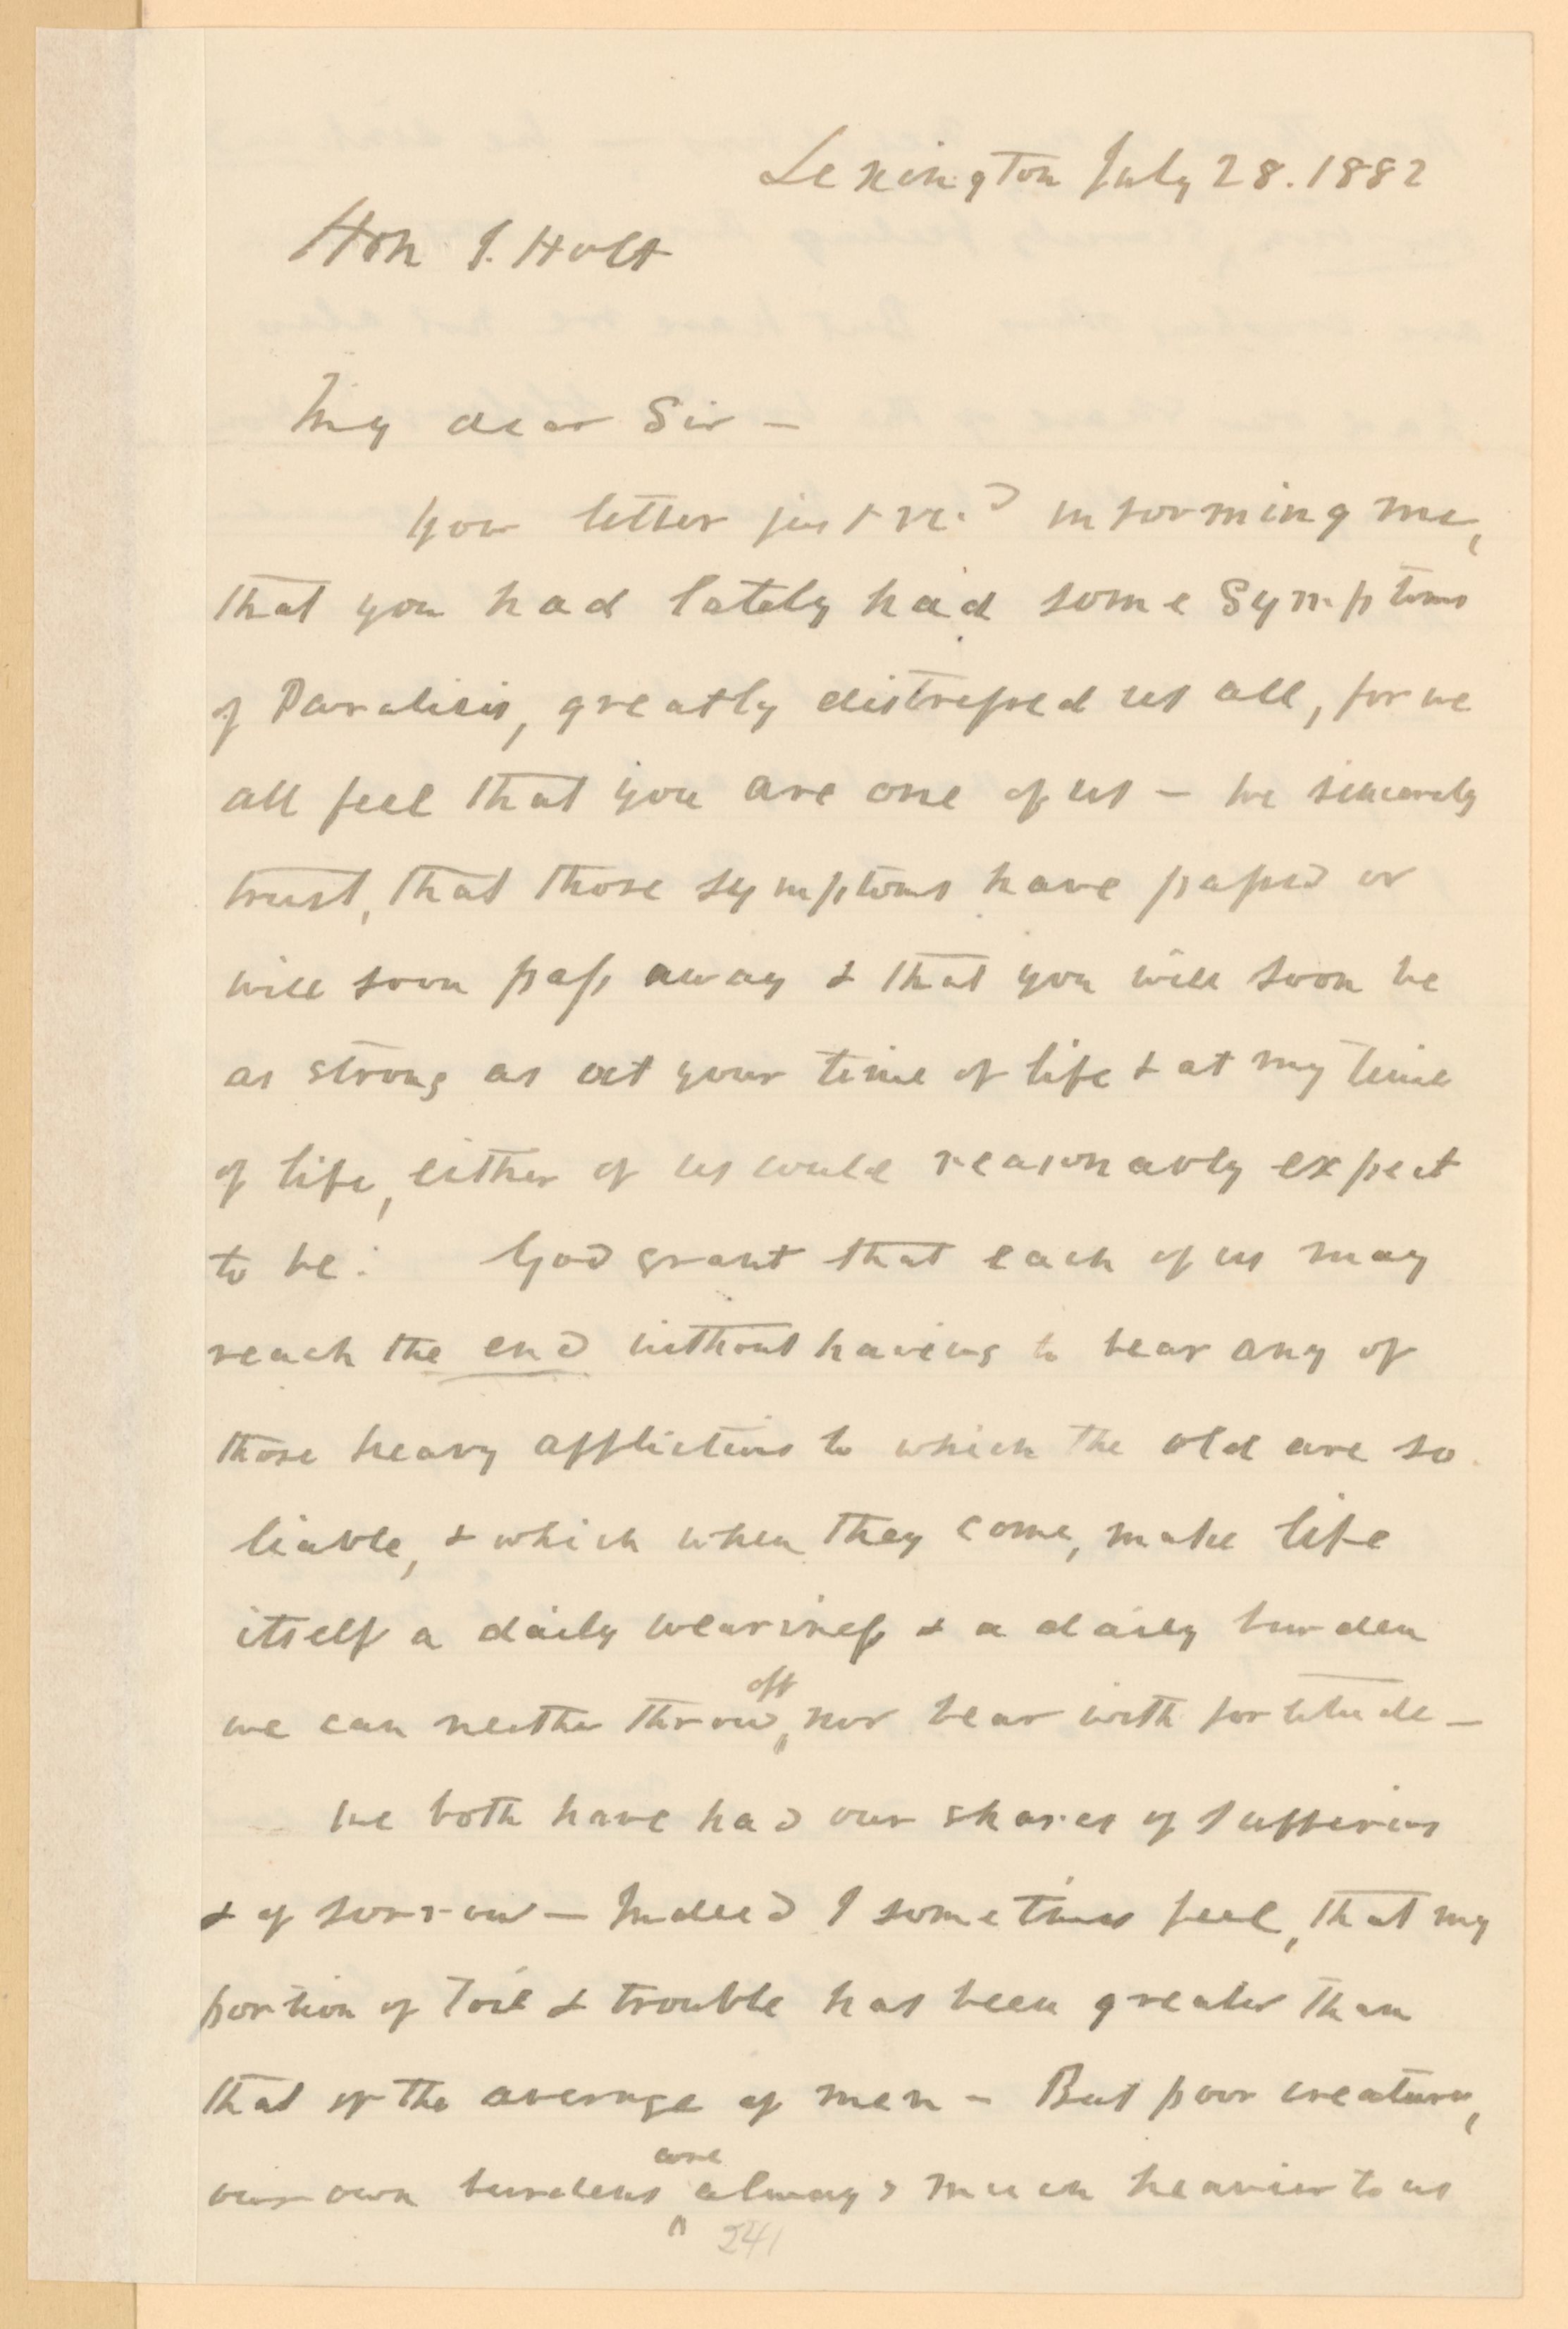 Lexington July 28. 1882
Hon J. Holt
My dear Sir —
Your letter just recd informing me,
that you had lately had some Symptoms
of Paralisis, greatly distressed us all, for we
all feel that you are one of us — We sincerely
trust, that those symptoms have passed or
will soon pass away & that you will soon be
as strong as at your time of life & at my time
of life, either of us could reasonably expect
to be. God grant that each of us may
reach the end without having to bear any of
those heavy afflictions to which the old are so
liable, & which when they come, make life
itself a daily weariness & a daily burden
we can neither throw off, nor bear with fortitude —
We both have had our shares of suffering
& of sorrow — Indeed I sometimes feel, that my
portion of Toil & trouble has been greater than
that of the average of men — But poor creatures,
our own burdens are always much heavier to us
241